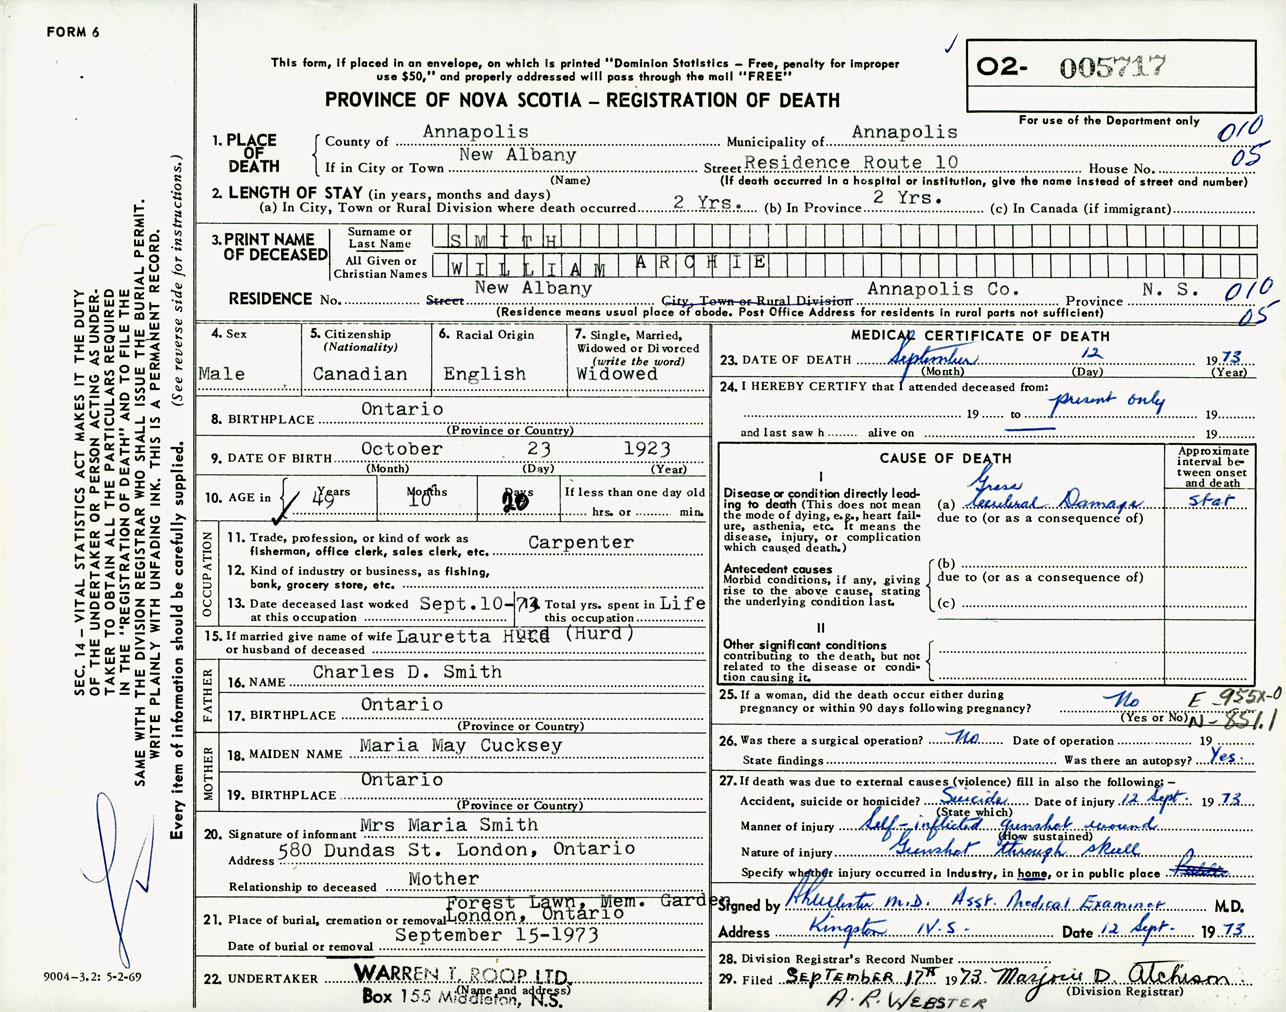 FORM 6
This form, if placed in an envelope, on which is printed "Dominion Statistics – Free, penalty for improper
use $50," and properly addressed will pass through the mail "FREE"
PROVINCE OF NOVA SCOTIA – REGISTRATION OF DEATH
O2- 005717
For use of the Department only
010
05
1. PLACE OF DEATH
County of Annapolis Municipality of Annapolis
If in City or Town New Albany Street Residence Route 10 House No.
(Name) (If death occurred in a hospital or institution, give the name instead of street and number)
2. LENGTH OF STAY (in years, months and days)
(a) In City, Town or Rural Division where death occurred 2 Yrs. (b) In Province 2 Yrs. (c) In Canada (if immigrant)
3. PRINT NAME OF DECEASED
Surname or Last Name SMITH
All Given or Christian Names WILLIAM ARCHIE
RESIDENCE No. Street New Albany City, Town or Rural Division Annapolis Co. Province N. S. 010
(Residence means usual place of abode. Post Office Address for residents in rural parts not sufficient) 05
4. Sex Male
5. Citizenship (Nationality) Canadian
6. Racial Origin English
7. Single, Married, Widowed or Divorced (write the word) Widowed
8. BIRTHPLACE Ontario
(Province or Country)
9. DATE OF BIRTH October 23 1923
(Month) (Day) (Year)
10. AGE in Years 49 Months 10 Days 20 If less than one day old
hrs. or min.
OCCUPATION
11. Trade, profession, or kind of work as
fisherman, office clerk, sales clerk, etc. Carpenter
12. Kind of industry or business, as fishing,
bank, grocery store, etc.
13. Date deceased last worked at this occupation Sept.10-73
14. Total yrs. spent in this occupation Life
15. If married give name of wife or husband of deceased Lauretta Hurd (Hurd)
FATHER
16. NAME Charles D. Smith
17. BIRTHPLACE Ontario
(Province or Country)
MOTHER
18. MAIDEN NAME Maria May Cucksey
19. BIRTHPLACE Ontario
(Province or Country)
20. Signature of informant Mrs Maria Smith
Address 580 Dundas St. London, Ontario
Relationship to deceased Mother
21. Place of burial, cremation or removal Forest Lawn, Mem. Garden
London, Ontario
Date of burial or removal September 15-1973
22. UNDERTAKER WARREN T. ROOP LTD.
(Name and address)
Box 155 Middleton, N.S.
MEDICAL CERTIFICATE OF DEATH
23. DATE OF DEATH September 12 1973
(Month) (Day) (Year)
24. I HEREBY CERTIFY that I attended deceased from:
19 to present only 19
and last saw h alive on 19
CAUSE OF DEATH
Approximate interval between onset and death
I
Disease or condition directly leading to death (This does not mean the mode of dying, e.g., heart failure, asthenia, etc. It means the disease, injury, or complication which caused death.)
(a) Gross Cerebral Damage stat
due to (or as a consequence of)
Antecedent causes
Morbid conditions, if any, giving rise to the above cause, stating the underlying condition last.
(b)
due to (or as a consequence of)
(c)
II
Other significant conditions
contributing to the death, but not related to the disease or condition causing it.
25. If a woman, did the death occur either during
pregnancy or within 90 days following pregnancy? No
(Yes or No)
E-955X-0
N-851.1
26. Was there a surgical operation? No Date of operation 19
State findings Was there an autopsy? Yes.
27. If death was due to external causes (violence) fill in also the following; –
Accident, suicide or homicide? Suicide Date of injury 12 Sept. 1973
(State which)
Manner of injury Self-inflicted gunshot wound
(How sustained)
Nature of injury Gunshot through skull
Specify whether injury occurred in Industry, in home, or in public place
Signed by M.D. Asst. Medical Examiner M.D.
Address Kingston N.S. Date 12 Sept. 1973
28. Division Registrar's Record Number
29. Filed SEPTEMBER 17TH 1973 Marjorie D. Atchison
(Division Registrar)
A. R. WEBSTER
SEC. 14 – VITAL STATISTICS ACT MAKES IT THE DUTY
OF THE UNDERTAKER OR PERSON ACTING AS UNDER-
TAKER TO OBTAIN ALL THE PARTICULARS REQUIRED
IN THE "REGISTRATION OF DEATH" AND TO FILE THE
SAME WITH THE DIVISION REGISTRAR WHO SHALL ISSUE THE BURIAL PERMIT.
WRITE PLAINLY WITH UNFADING INK. THIS IS A PERMANENT RECORD.
Every item of information should be carefully supplied. (See reverse side for instructions.)
9004-3.2: 5-2-69